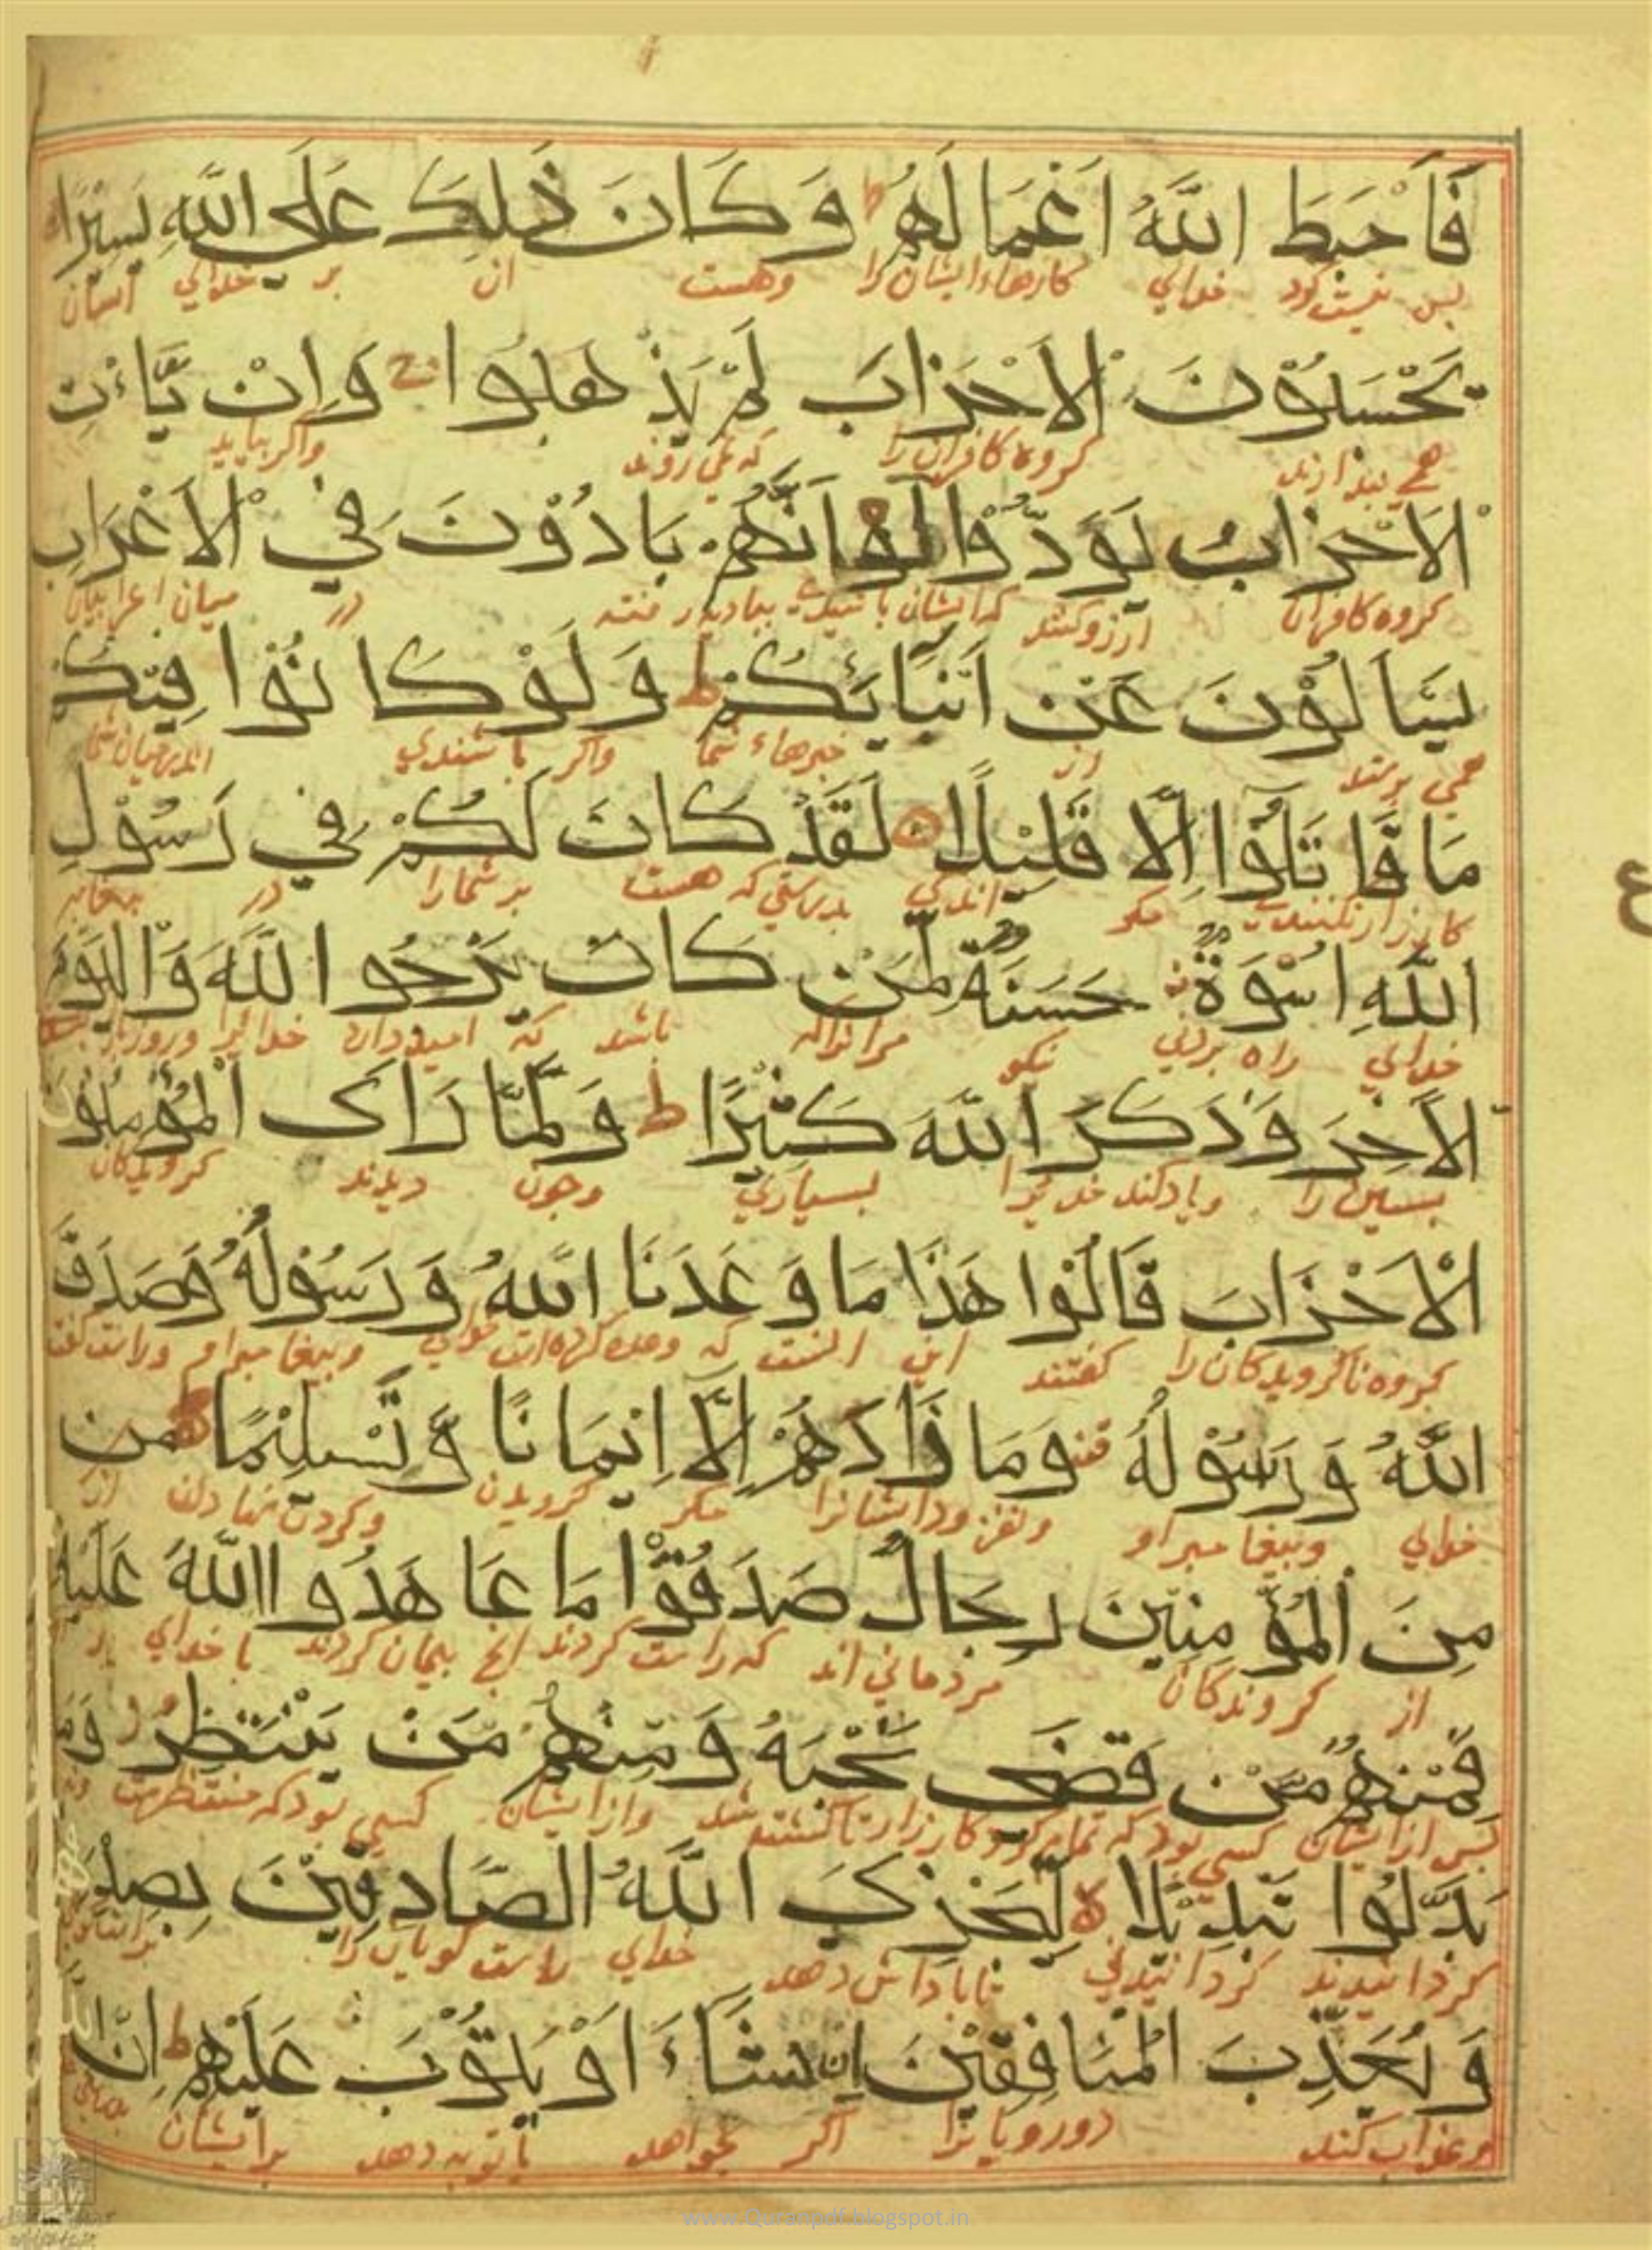 فَاَحْبَطَ اللّٰهُ اَعْمَالَهُمْ ط وَكَانَ ذٰلِكَ عَلَى اللّٰهِ يَسِيْرًا
خدای کارهاء ایشان را وهست ان بر خدای اسان
يَحْسَبُوْنَ الْاَحْزَابَ لَمْ يَذْهَبُوا ج وَاِنْ يَّاْتِ
کروه کافران را که نمی روند واکر بیاید
الْاَحْزَابُ يَوَدُّوْا لَوْ اَنَّهُمْ بَادُوْنَ فِي الْاَعْرَابِ
کروه کافران ارزو کنند که ایشان در میان اعرابیان
يَسْاَلُوْنَ عَنْ اَنْبَائِكُمْ ط وَلَوْ كَانُوْا فِيْكُمْ
می پرسند از خبرهاء شما واکر باشندی اندر میان شما
مَا قَاتَلُوْا اِلَّا قَلِيْلًا لَقَدْ كَانَ لَكُمْ فِي رَسُوْلِ
کارزار نکنندی مکر اندکی بدرستی که هست بر شما را در
اللّٰهِ اُسْوَةٌ حَسَنَةٌ لِّمَنْ كَانَ يَرْجُو اللّٰهَ وَالْيَوْمَ
خدای راه بردنی نیکو مر انرا که باشد که امید دارد خدایرا وروز
الْاٰخِرَ وَذَكَرَ اللّٰهَ كَثِيْرًا ط وَلَمَّا رَاَى الْمُؤْمِنُوْنَ
بسین را ویاد کند خدایرا بسیاری وجون دیدند کرویدکان
الْاَحْزَابَ قَالُوْا هٰذَا مَا وَعَدَنَا اللّٰهُ وَرَسُوْلُهُ وَصَدَقَ
کروه ناکرویدکان را کفتند این انست که وعده کرده است خدای وبیغامبر او وراست کفت
اللّٰهُ وَرَسُوْلُهُ وَمَا زَادَهُمْ اِلَّا اِيْمَانًا وَّتَسْلِيْمًا مِنَ
خدای وبیغامبر او ونفزود ایشانرا مکر کرویدن وکردن نهادن از
مِنَ الْمُؤْمِنِيْنَ رِجَالٌ صَدَقُوْا مَا عَاهَدُوا اللّٰهَ عَلَيْهِ
از کروندکان مردمانی اند که راست کردند انج بیمان کردند با خدای بر
فَمِنْهُمْ مَّنْ قَضٰى نَحْبَهُ وَمِنْهُمْ مَّنْ يَنْتَظِرُ وَمَا
بس از ایشان کسی بود که تمام کرد کارزار تا کشته شد واز ایشان کسی بود که منتظرست
بَدَّلُوا تَبْدِيْلًا لا لِّيَجْزِيَ اللّٰهُ الصَّادِقِيْنَ بِصِدْقِهِمْ
کردانیدند کردانیدنی تا باداش دهد خدای راست کویان را
وَيُعَذِّبَ الْمُنَافِقِيْنَ اِنْ شَاءَ اَوْ يَتُوْبَ عَلَيْهِمْ ط اِنَّ اللّٰهَ
وعذاب کند دورویانرا اکر بخواهد یا توبه دهد بر ایشان
ع
www.Quranpdf.blogspot.in